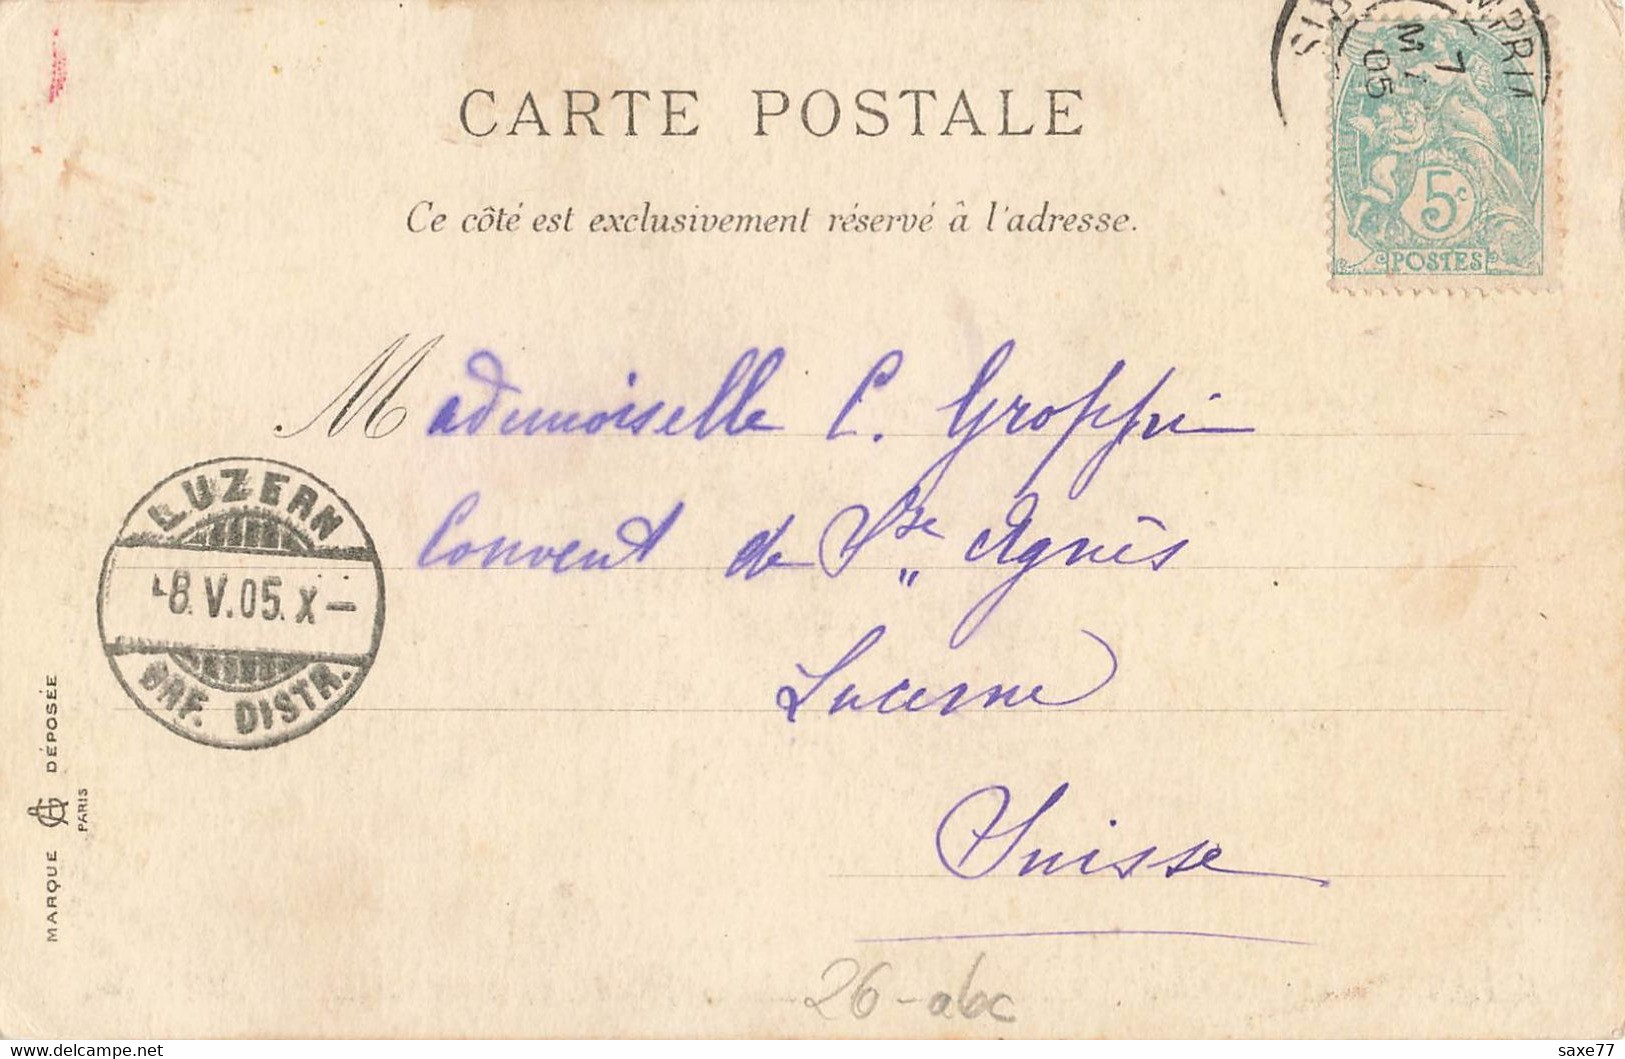 7
05
5c
POSTES
CARTE POSTALE
Ce côté est exclusivement réservé à l'adresse.
Mademoiselle C. Groppi
Convent de Ste Agnès
Lucerne
Suisse
LUZERN
-8.V.05.X-
BRF. DISTR.
MARQUE DÉPOSÉE
PARIS
26-abc
delcampe.net
saxe77